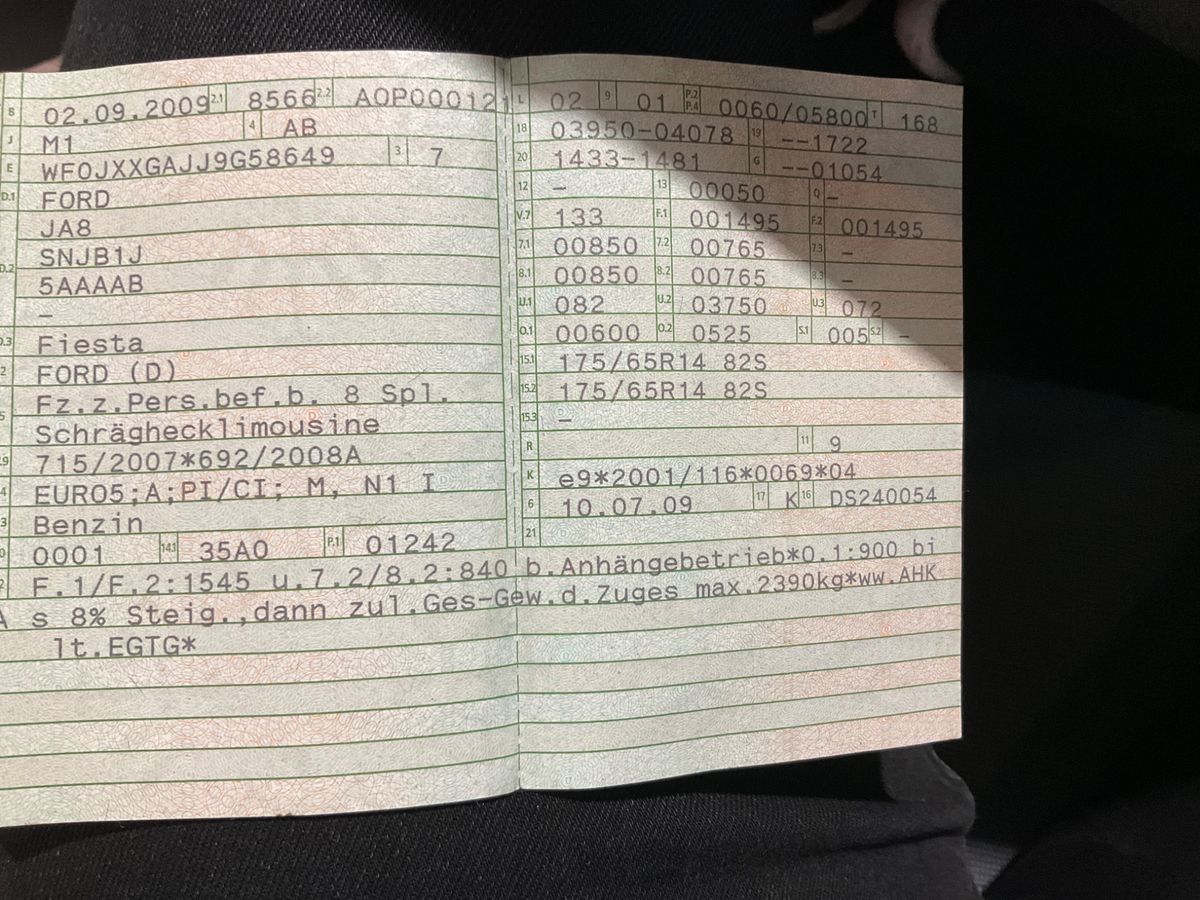 B 02.09.2009 2.1 8566 2.2 AOP000121
J M1 4 AB
E WF0JXXGAJJ9G58649 3 7
D.1 FORD
JA8
D.2 SNJB1J
5AAAAB
–
D.3 Fiesta
2 FORD (D)
5 Fz.z.Pers.bef.b. 8 Spl.
Schräghecklimousine
V.9 715/2007*692/2008A
14 EURO5;A;PI/CI; M, N1 I
P.3 Benzin
10 0001 14.1 35A0 P.1 01242
L 02 9 01 P.2 P.4 0060/05800 T 168
18 03950-04078 19 --1722
20 1433-1481 G --01054
12 – 13 00050 Q –
V.7 133 F.1 001495 F.2 001495
7.1 00850 7.2 00765 7.3 –
8.1 00850 8.2 00765 8.3 –
U.1 082 U.2 03750 U.3 072
O.1 00600 O.2 0525 S.1 005 S.2 –
15.1 175/65R14 82S
15.2 175/65R14 82S
15.3 –
R 11 9
K e9*2001/116*0069*04
6 10.07.09 17 K 16 DS240054
21
22 F.1/F.2:1545 u.7.2/8.2:840 b.Anhängebetrieb*O.1:900 bi
A s 8% Steig.,dann zul.Ges-Gew.d.Zuges max.2390kg*ww.AHK
lt.EGTG*